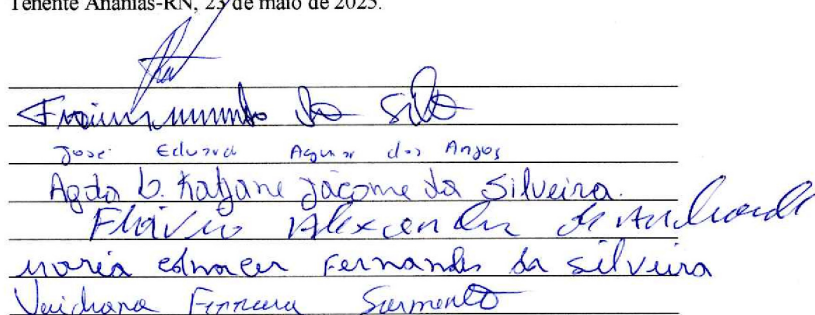 Tenente Ananias-RN, 23 de maio de 2025.
da Silva
José Eduard Aguiar dos Anjos
Agda b. Katjane Jácome da Silveira.
Flávio Alexandre de Andrade
Maria Fernandes da Silveira
Ferreira Sarmento